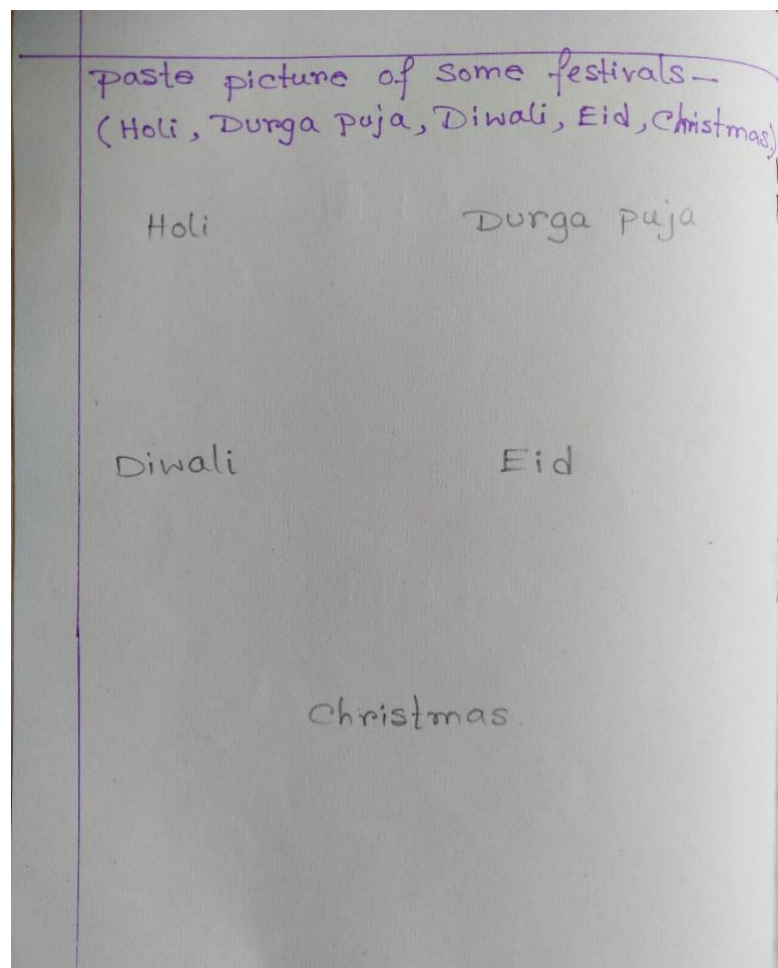 paste picture of some festivals—
(Holi, Durga puja, Diwali, Eid, Christmas)
Holi Durga puja
Diwali Eid
Christmas